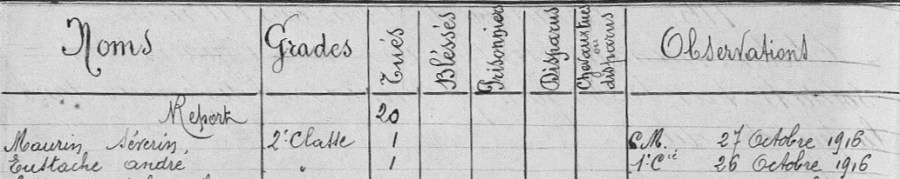 Noms Grades Tués Bléssés Prisonniers Disparus Chevaux tués ou disparus Observations
Report 20
Maurin Séverin, 2e Classe 1 C.M. 27 Octobre 1916
Eustache andré " 1 1e Cie 26 Octobre 1916